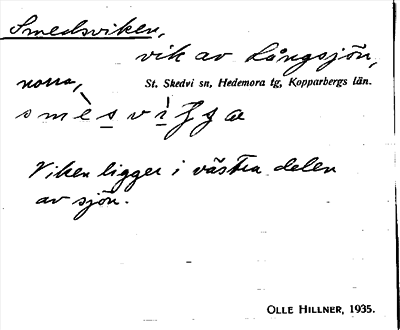 Smedsviken,
vik av Långsjön,
norra,
St. Skedvi sn, Hedemora tg, Kopparbergs län.
Viken ligger i västra delen
av sjön.
OLLE HILLNER, 1935.